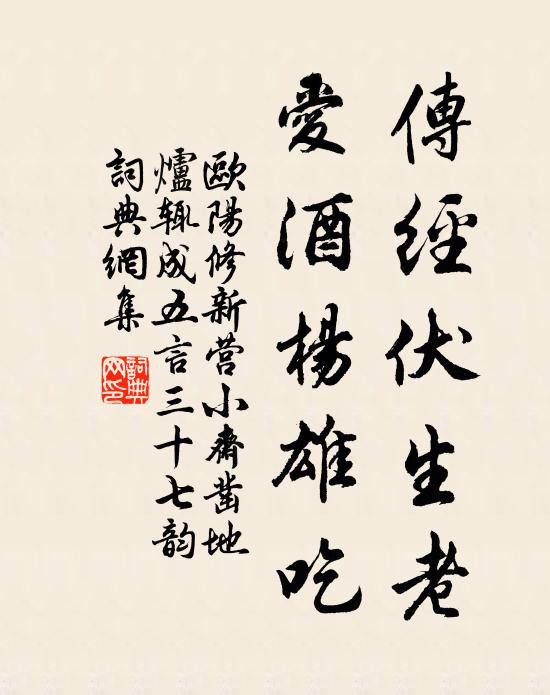 傳經伏生老
愛酒楊雄吃
歐陽修新營小齋鑿地
爐輒成五言三十七韵
詞典網集
詞典網印